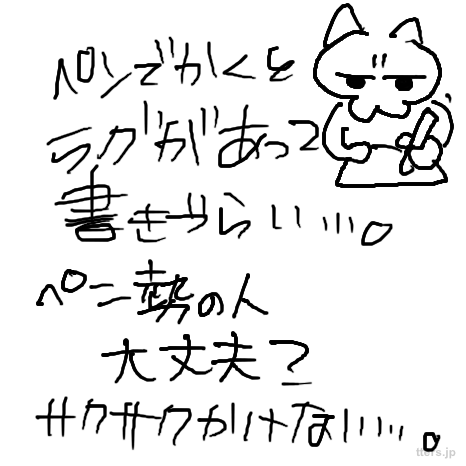 ペンでかくと
ラグがあって
書きづらい…。
ペン勢の人
大丈夫?
サクサクかけない…。
tters.jp